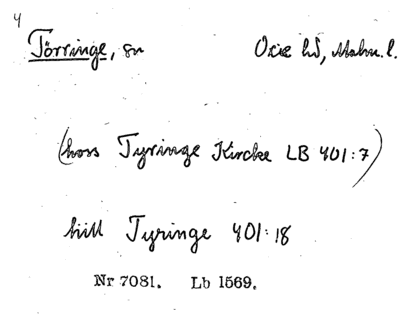 4
Törringe, sn Oxie hd, Malm. l.
(hoss Tyringe Kircke LB 401:7)
till Tyringe 401:18
Nr 7081. Lb 1569.